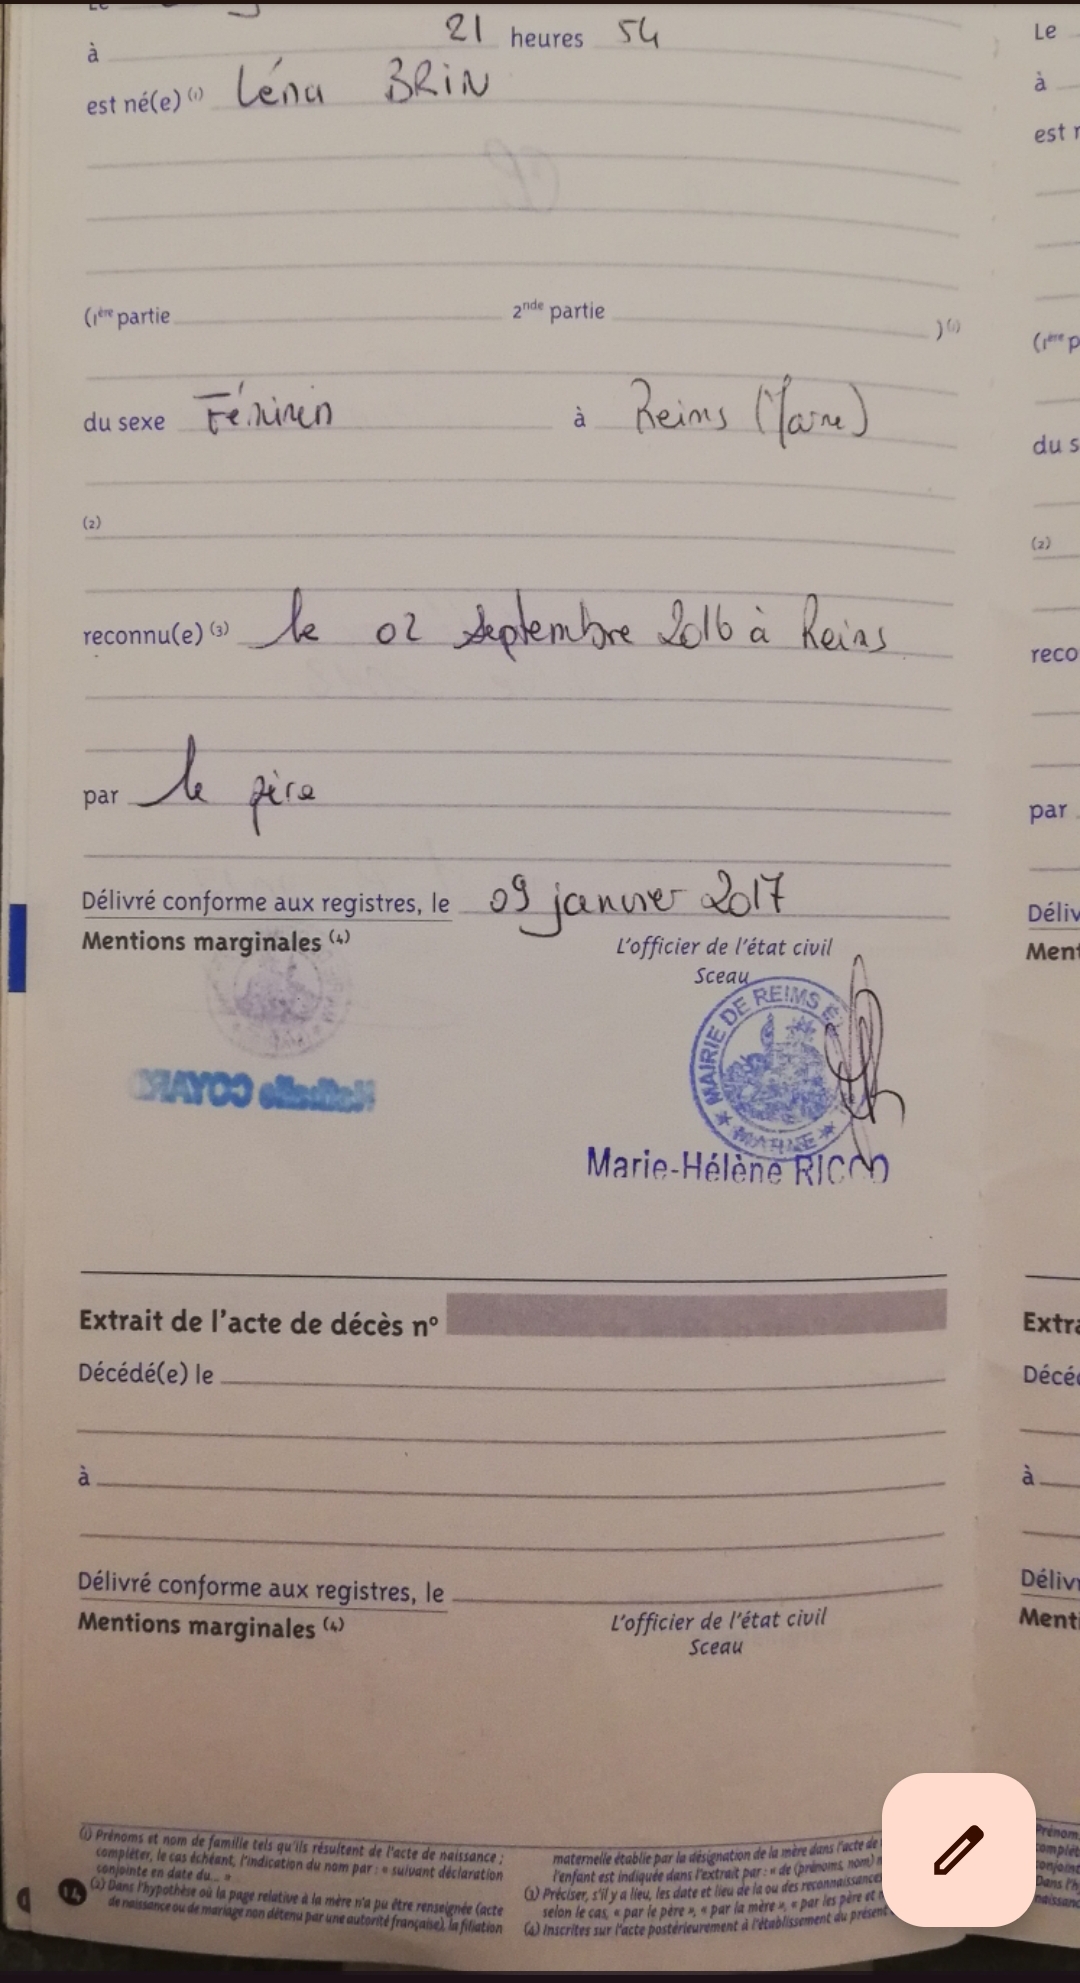 à 21 heures 54
est né(e) (1) Léna BRIN
(1ère partie 2nde partie )(1)
du sexe Féminin à Reims (Marne)
(2)
reconnu(e) (3) le 02 septembre 2016 à Reims
par le père
Délivré conforme aux registres, le 09 janvier 2017
Mentions marginales (4)
L'officier de l'état civil
Sceau
MAIRIE DE REIMS
MARNE
Marie-Hélène
Extrait de l'acte de décès nº
Décédé(e) le
à
Délivré conforme aux registres, le
Mentions marginales (4)
L'officier de l'état civil
Sceau
(1) Prénoms et nom de famille tels qu'ils résultent de l'acte de naissance ;
compléter, le cas échéant, l'indication du nom par : « suivant déclaration
conjointe en date du... »
(2) Dans l'hypothèse où la page relative à la mère n'a pu être renseignée (acte
de naissance ou de mariage non détenu par une autorité française), la filiation
maternelle établie par la désignation de la mère dans l'acte de
l'enfant est indiquée dans l'extrait par : « de (prénoms, nom)
(3) Préciser, s'il y a lieu, les date et lieu de la ou des reconnaissances
selon le cas, « par le père », « par la mère », « par les père et
(4) Inscrites sur l'acte postérieurement à l'établissement du présent
14
Le
à
est
(1ère
du
(2)
par
à